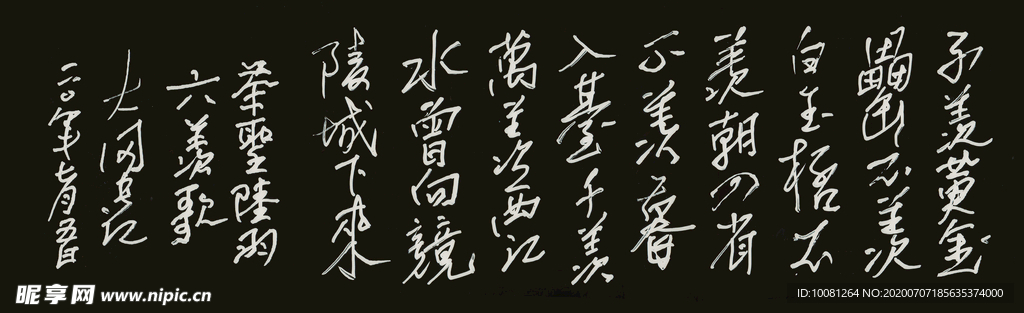 不羡黄金
罍不羡
白玉杯不
羡朝入省
不羡暮
入台千羡
万羡西江
水曾向竟
陵城下来
茶圣陆羽
六羡歌
大冈书记
二〇一〇年七月五日
昵享网 www.nipic.cn
ID:10081264 NO:20200707185635374000